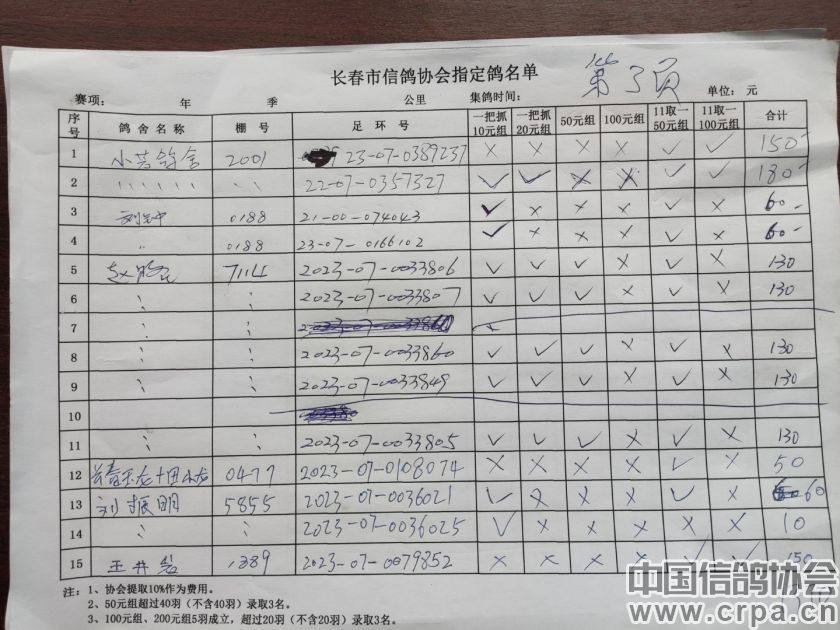 长春市信鸽协会指定鸽名单 第3页
赛项： 年 季 公里 集鸽时间： 单位：元
序号 鸽舍名称 棚号 足环号 一把抓10元组 一把抓20元组 50元组 100元组 11取一50元组 11取一100元组 合计
1 小芸鸽舍 2001 23-07-0389237 × × × × ✓ ✓ 150-
2 〃 〃 22-07-0357327 ✓ ✓ × × ✓ ✓ 180-
3 0188 21-00-074043 ✓ × × × ✓ × 60-
4 〃 0188 23-07-0166102 ✓ × × × ✓ × 60-
5 7114 2023-07-0033806 ✓ ✓ ✓ × ✓ × 130
6 〃 〃 2023-07-0033807 ✓ ✓ ✓ × ✓ × 130
7 〃 〃
8 〃 〃 2023-07-0033860 ✓ ✓ ✓ × ✓ × 130
9 〃 〃 2023-07-0033849 ✓ ✓ ✓ × ✓ × 130
10
11 〃 〃 2023-07-0033805 ✓ ✓ ✓ × ✓ × 130
12 0477 2023-07-0108074 × × × × ✓ × 50
13 刘振明 5855 2023-07-0036021 ✓ × × × ✓ × 60
14 〃 〃 2023-07-0036025 ✓ × × × × × 10
15 王井岩 1389 2023-07-0079352 × × × × ✓ ✓ 150
注：1、协会提取10%作为费用。
2、50元组超过40羽（不含40羽）录取3名。
3、100元组、200元组5羽成立，超过20羽（不含20羽）录取3名。
中国信鸽协会
www.crpa.cn